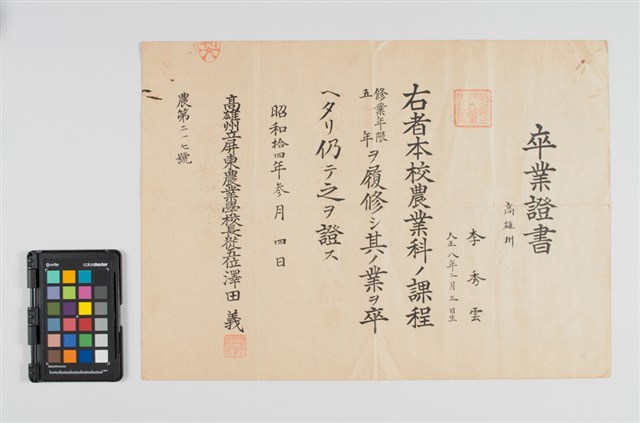 卒業證書
高雄州
李秀雲
大正八年二月三日生
右者本校農業科ノ課程
修業年限
五年ヲ履修シ其ノ業ヲ卒
ヘタリ仍テ之ヲ證ス
昭和拾四年參月四日
高雄州立屏東農業學校長從五位澤田義
農第二一七號